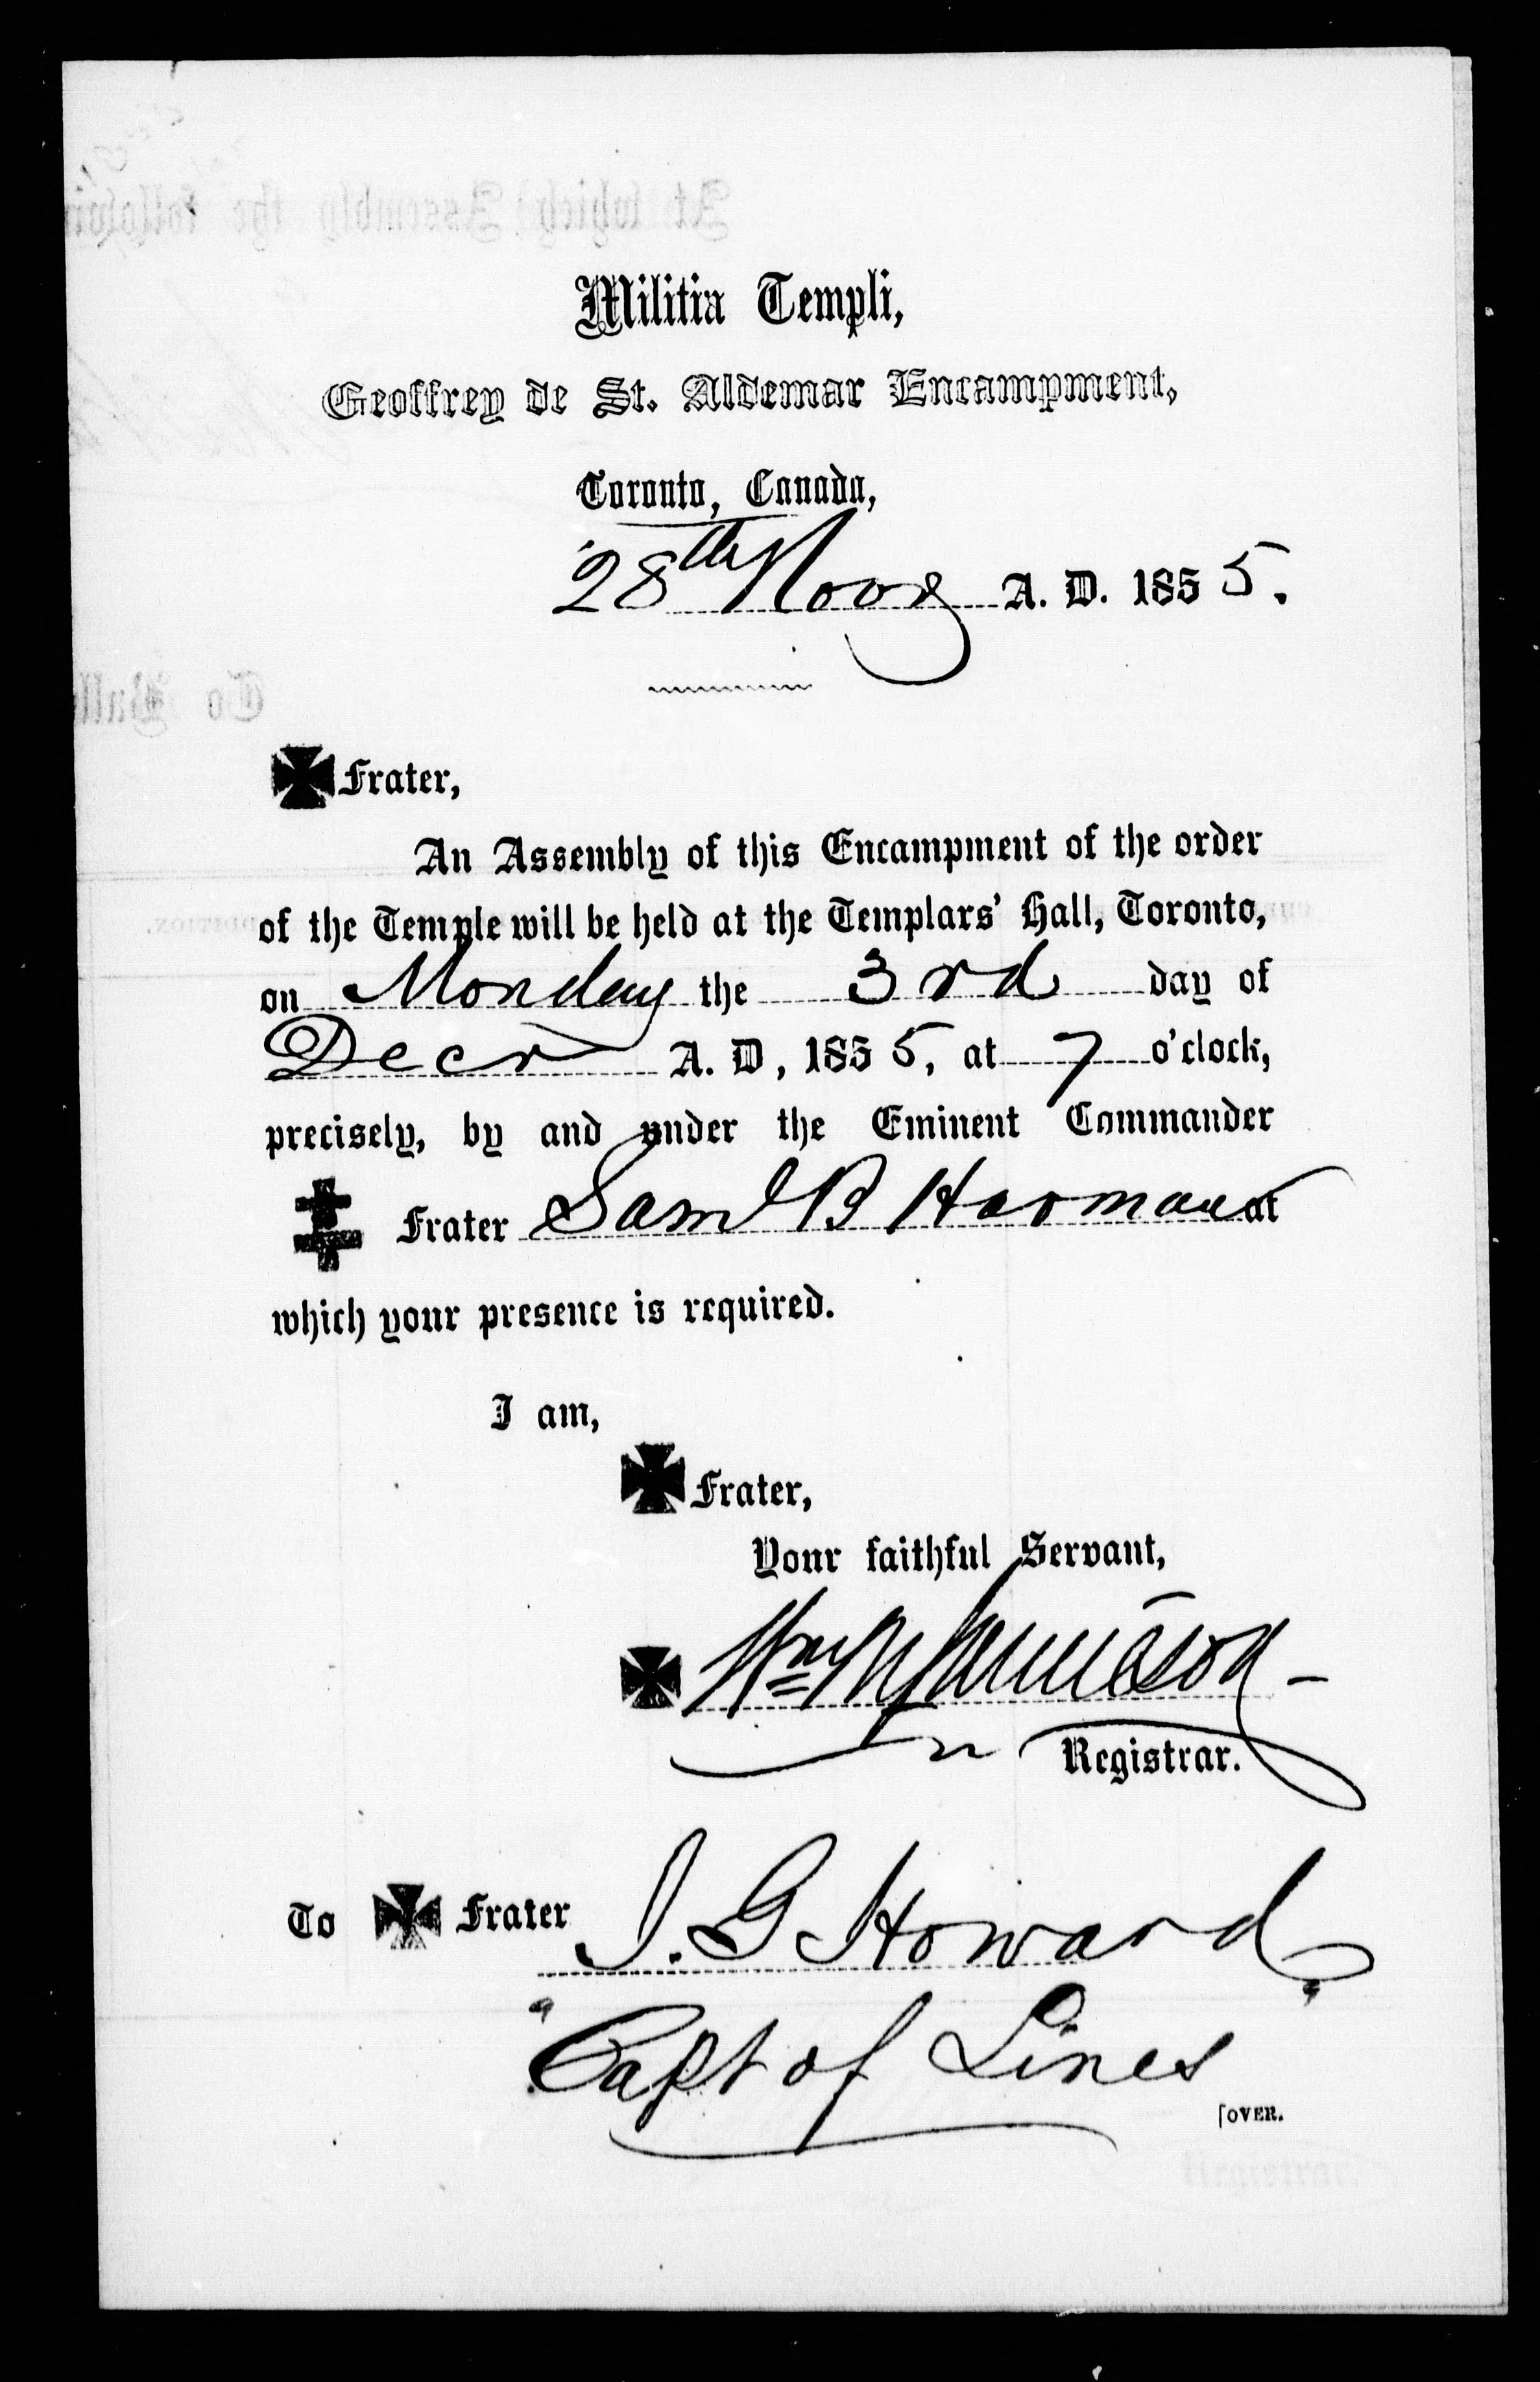 Militia Templi,
Geoffrey de St. Aldemar Encampment,
Toronto, Canada,
28th Novr A. D. 1855.
Frater,
An Assembly of this Encampment of the order
of the Temple will be held at the Templars' Hall, Toronto,
on Monday the 3rd day of
Decr A. D, 1855, at 7 o'clock,
precisely, by and under the Eminent Commander
Frater Saml B Harman at
which your presence is required.
I am,
Frater,
Your faithful Servant,
Wm Jamieson
Registrar.
To Frater J. G Howard
"Capt of Lines"
[OVER.